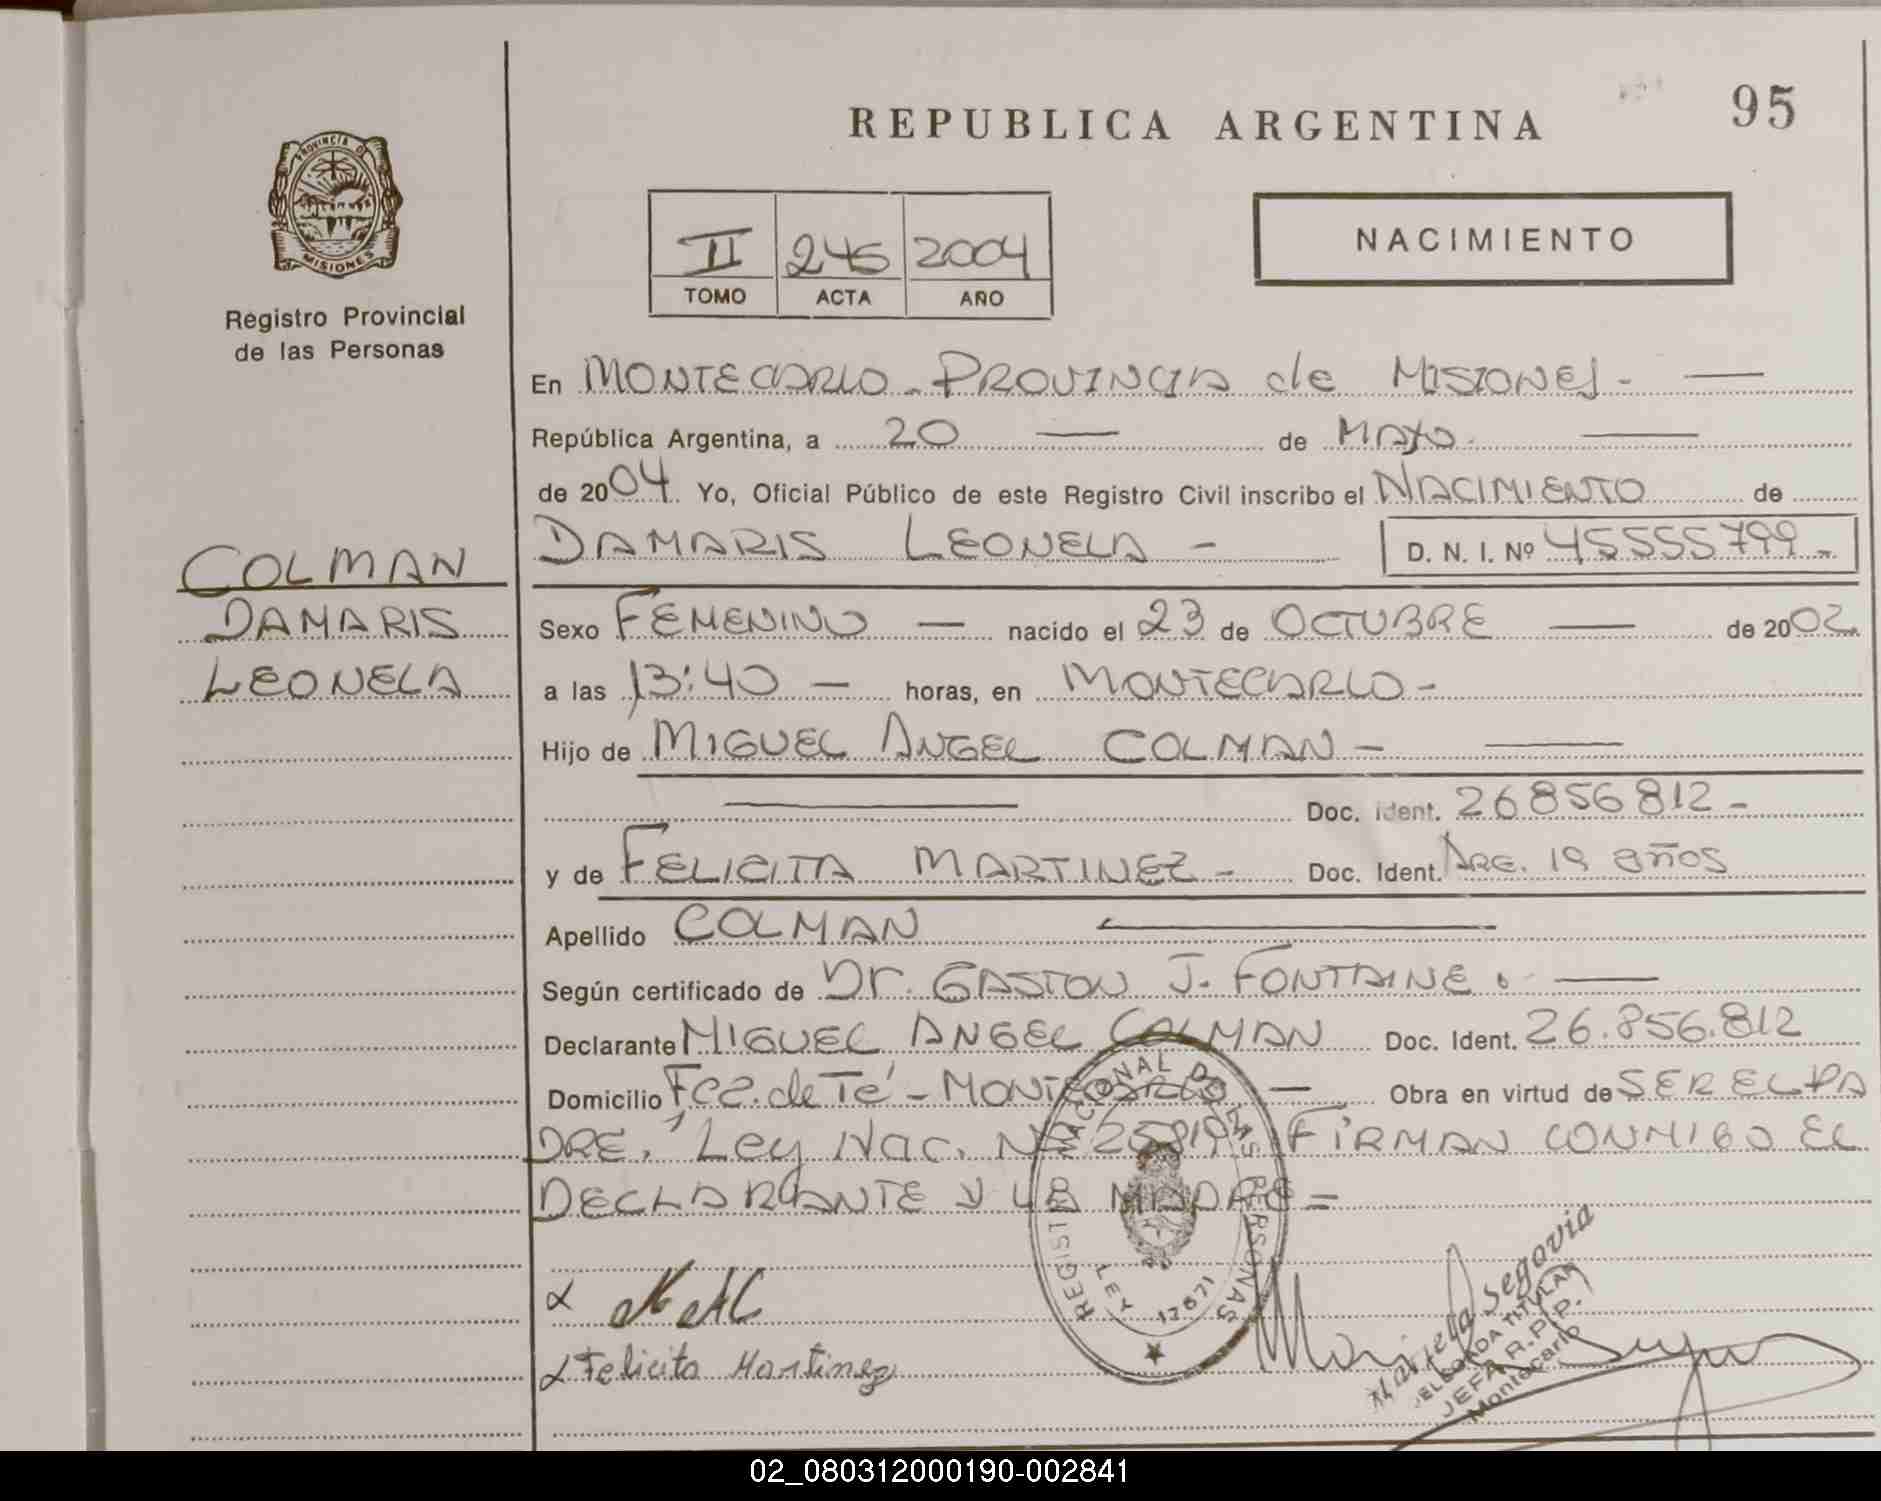 REPUBLICA ARGENTINA
95
PROVINCIA DE
MISIONES
Registro Provincial
de las Personas
II 245 2004
TOMO ACTA AÑO
NACIMIENTO
En MONTECARLO - PROVINCIA de MISIONES -
República Argentina, a 20 de MAYO.
de 2004 Yo, Oficial Público de este Registro Civil inscribo el NACIMIENTO de
DAMARIS LEONELA - D. N. I. Nº 45555799 -
COLMAN
DAMARIS
LEONELA
Sexo FEMENINO — nacido el 23 de OCTUBRE — de 2002
a las 13:40 — horas, en MONTECARLO -
Hijo de MIGUEL ANGEL COLMAN -
Doc. Ident. 26856812 -
y de FELICITA MARTINEZ - Doc. Ident. ARG. 19 años
Apellido COLMAN
Según certificado de Dr. GASTON J. FONTAINE.
Declarante MIGUEL ANGEL COLMAN Doc. Ident. 26.856.812
Domicilio Fca. de Té - MONTECARLO — Obra en virtud de SER EL PA
DRE, Ley Nac. Nº 25819 FIRMAN CONMIGO EL
DECLARANTE Y LA MADRE =
REGISTRO NACIONAL DE LAS PERSONAS
LEY 17671
Felicita Martinez
Mariela Segovia
DELEGADA TITULAR
JEFA R.P.P.
Montecarlo
02_080312000190-002841